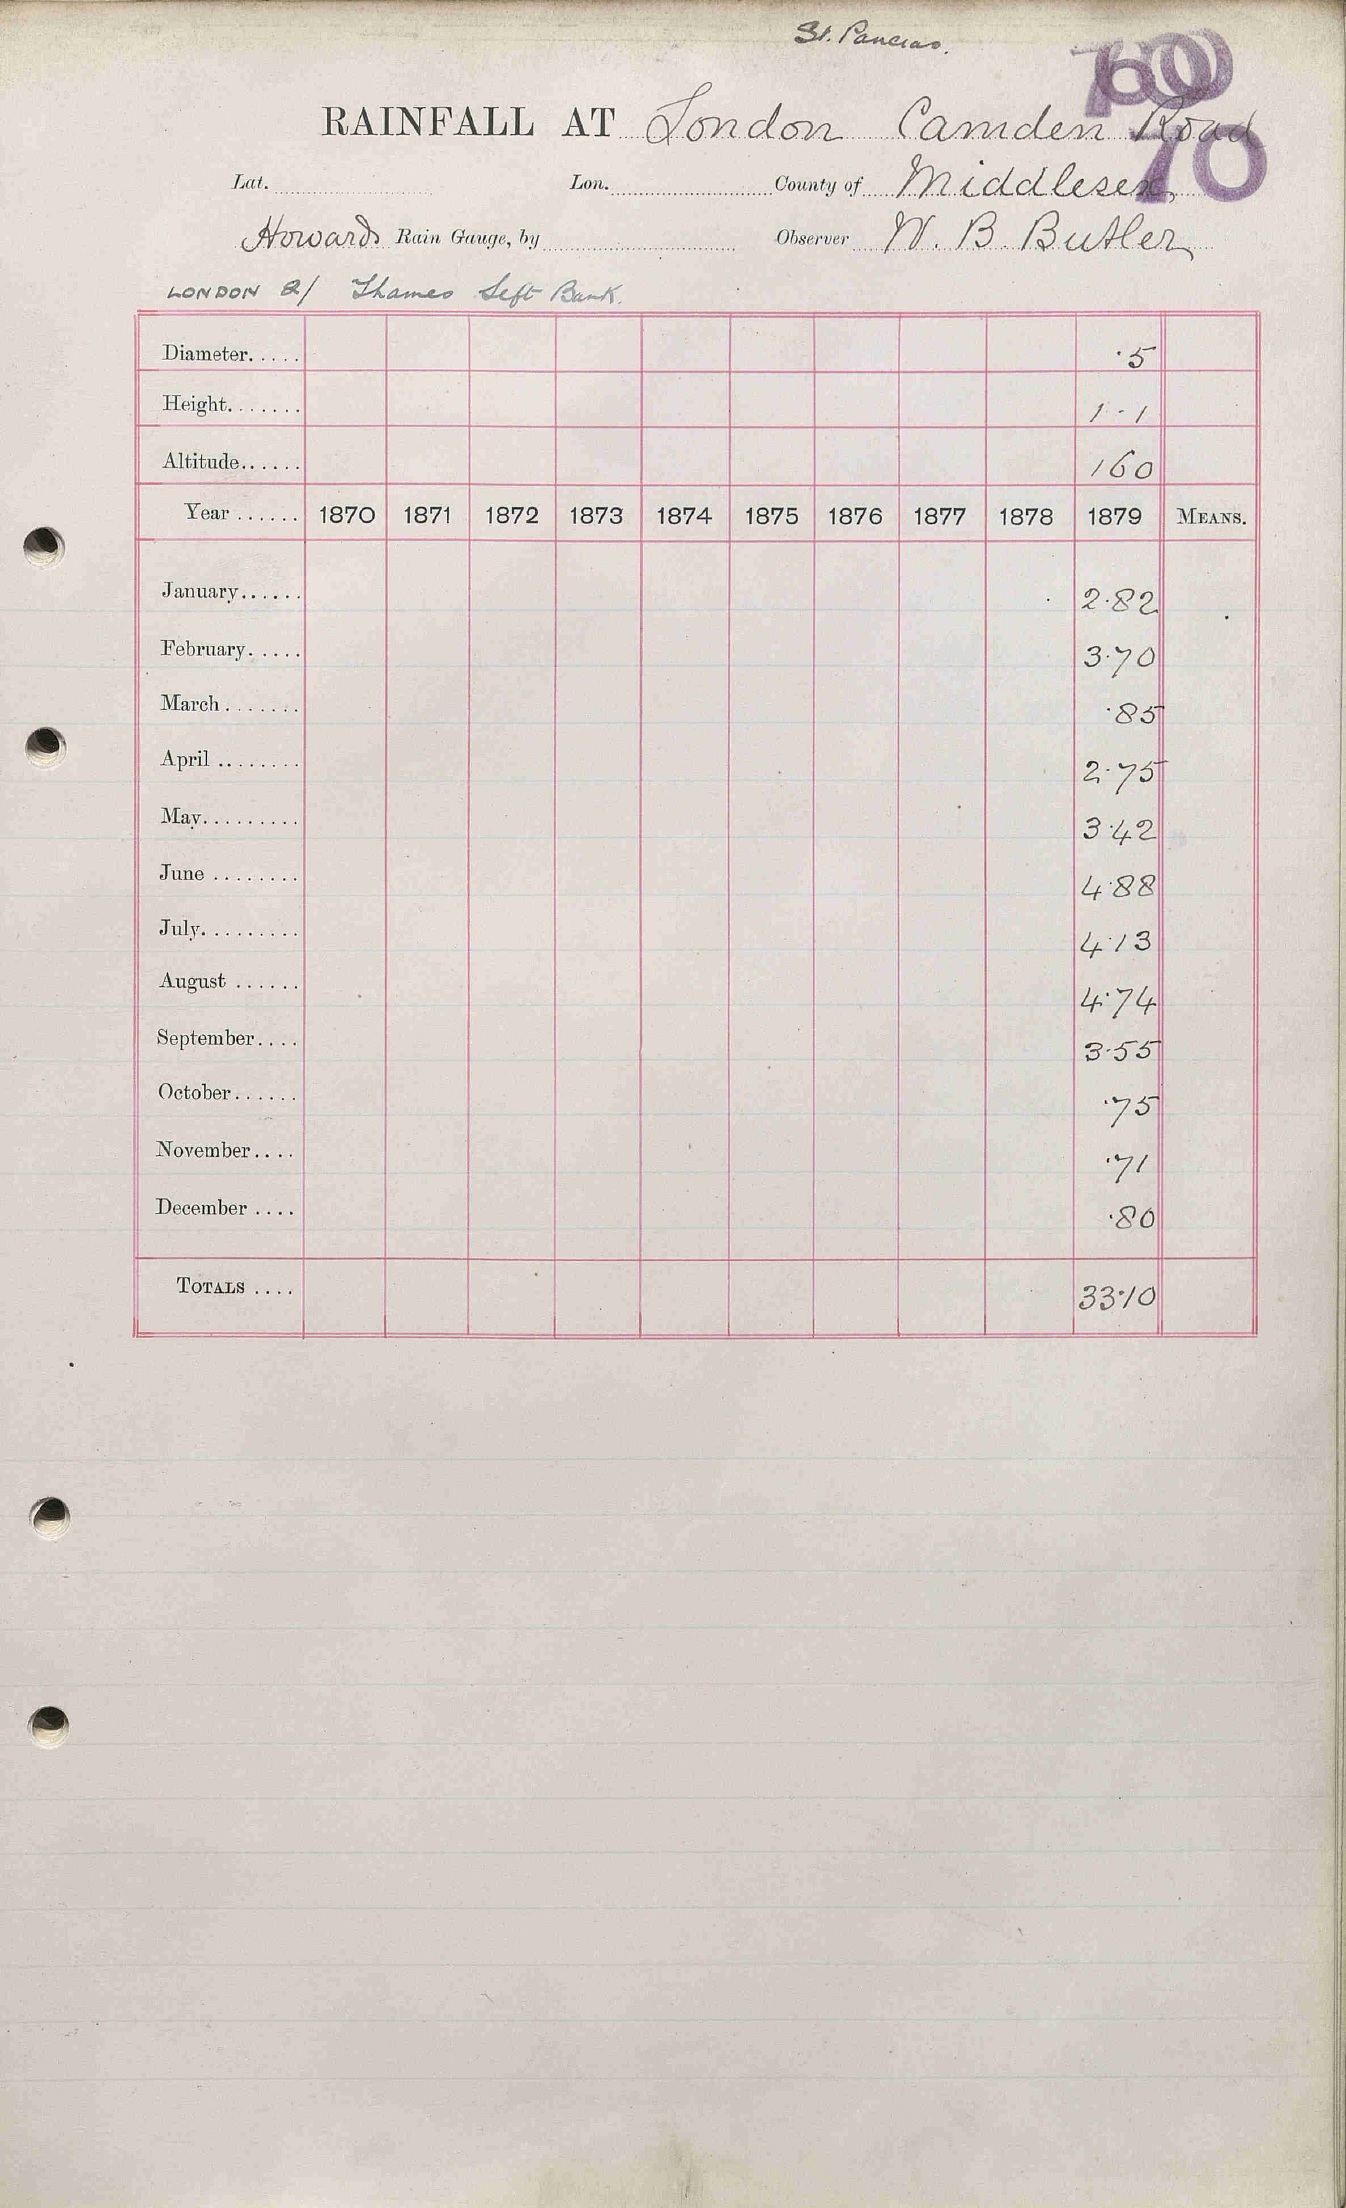 St. Pancras.
RAINFALL AT London Camden Road
70
Lat. Lon. County of Middlesex,
Howards Rain Gauge, by Observer W. B. Butler
LONDON 2/ Thames Left Bank.
Diameter..... ·5
Height....... 1·1
Altitude...... 160
Year ...... 1870 1871 1872 1873 1874 1875 1876 1877 1878 1879 MEANS.
January...... 2·82
February..... 3·70
March ....... ·85
April ........ 2·75
May......... 3·42
June ........ 4·88
July......... 4·13
August ...... 4·74
September.... 3·55
October...... ·75
November.... ·71
December .... ·80
TOTALS .... 33·10